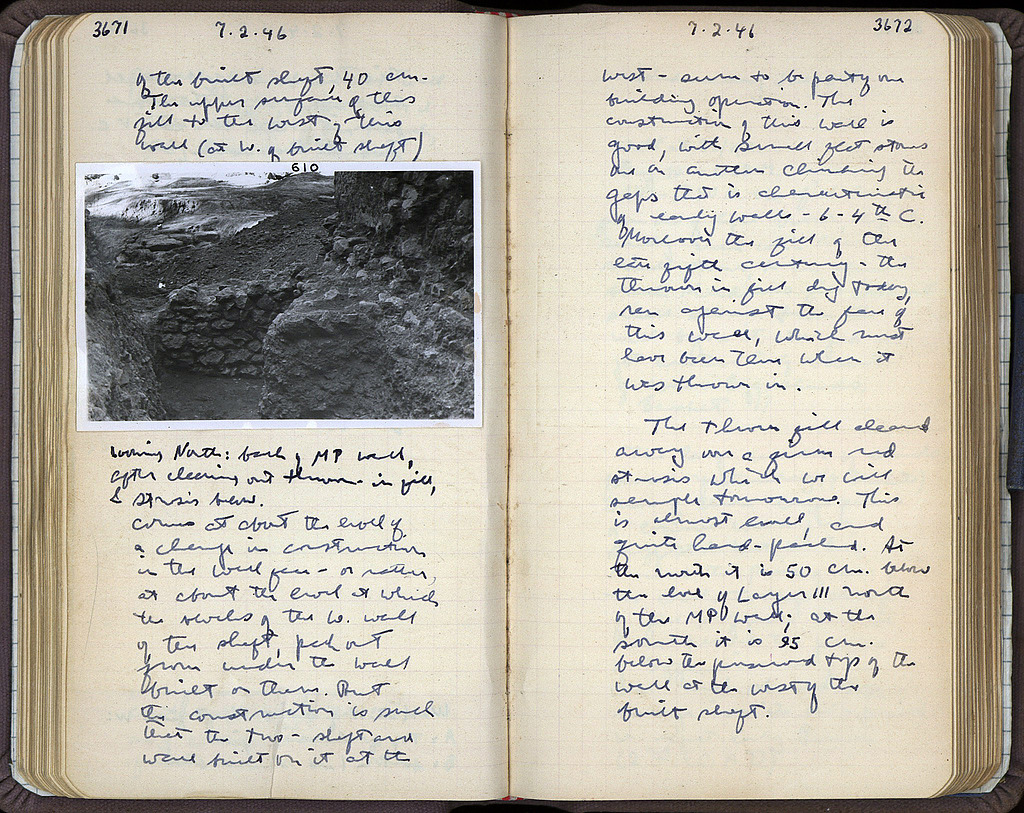 3671
7.2.46
of the built shaft, 40 cm.
The upper surface of this
fill to the west of this
wall (at W. of built shaft)
610
Looking North: back of MP wall,
after clearing out thrown-in fill,
& strosis below.
comes at about the level of
a change in construction
in the wall face - or rather,
at about the level at which
the rocks of the W. wall
of the shaft, peek out
from under the wall
built on them. But
the construction is such
that the two - shaft and
wall built on it at the
7.2.46
3672
west - seem to be part of one
building operation. The
construction of this wall is
good, with small flat stones
one on another climbing the
gaps that is characteristic
of early walls - 6 - 4th C.
Moreover the fill of the
late fifth century - the
thrown in fill dug today,
ran against the face of
this wall, which must
have been there when it
was thrown in.
The thrown fill cleared
away over a firm red
strosis which we will
sample tomorrow. This
is almost level, and
quite hard-packed. At
the north it is 50 cm. below
the level of Layer III north
of the MP wall; at the
south it is 95 cm.
below the preserved top of the
wall at the west of the
built shaft.